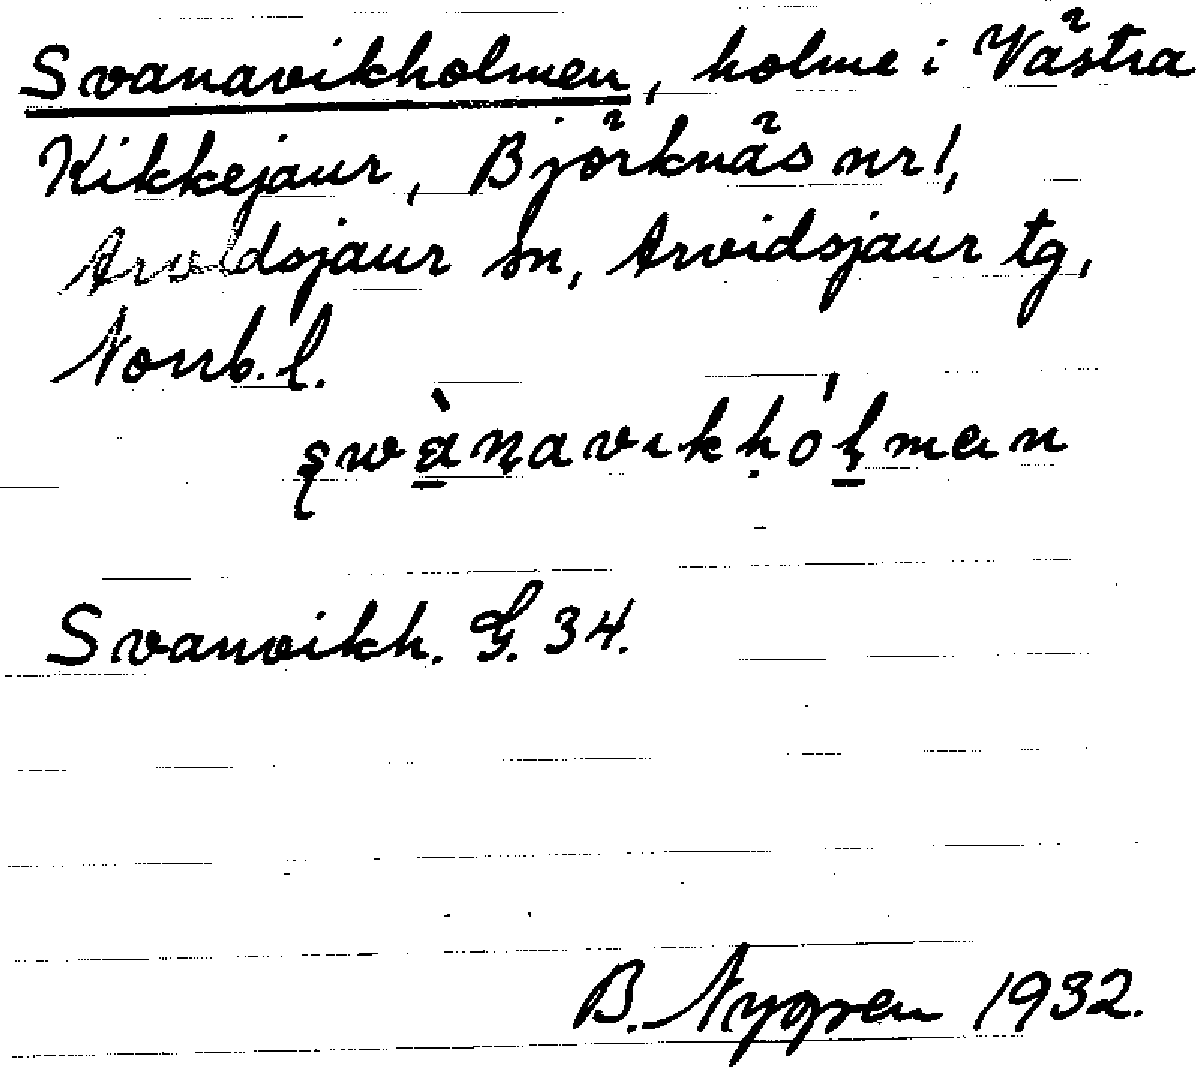 Svanavikholmen, holme i Västra
Kikkejaur, Björknäs nr 1,
Arvidsjaur sn, Arvidsjaur tg,
Norrb. l.
Svanvikh. G. 34.
B. Nygren 1932.